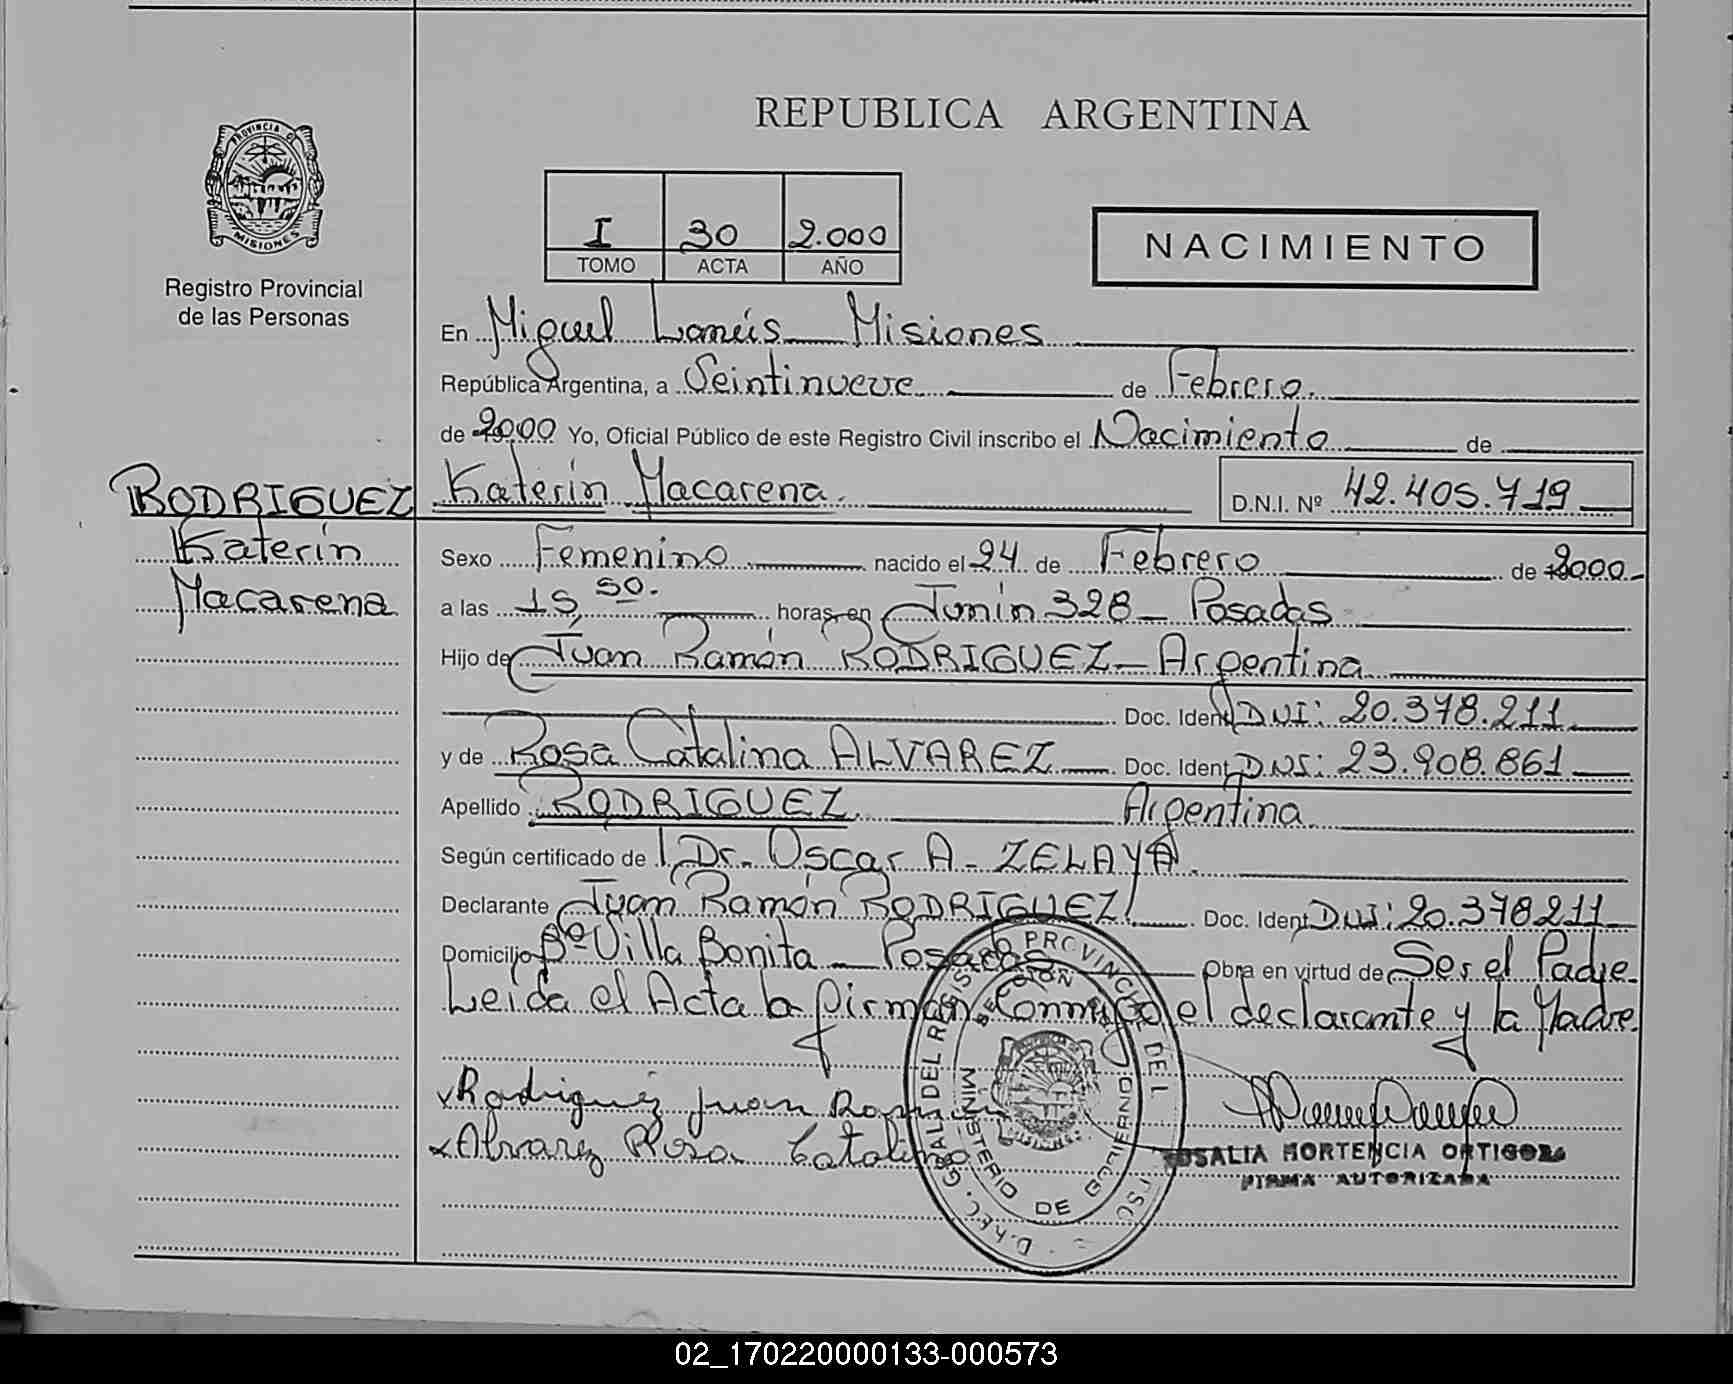 REPUBLICA ARGENTINA
PROVINCIA DE
MISIONES
Registro Provincial
de las Personas
I 30 2.000
TOMO ACTA AÑO
NACIMIENTO
En Miguel Lanús Misiones
República Argentina, a Veintinueve de Febrero.
de 2000 Yo, Oficial Público de este Registro Civil inscribo el Nacimiento de
RODRIGUEZ Katerin Macarena.
D.N.I. Nº 42.405.719
Katerin
Macarena
Sexo Femenino nacido el 24 de Febrero de 2000
a las 15,50. horas en Junín 328 - Posadas
Hijo de Juan Ramón RODRIGUEZ - Argentina
Doc. Ident. DNI: 20.378.211
y de Rosa Catalina ALVAREZ Doc. Ident. DNI: 23.908.861
Apellido RODRIGUEZ Argentina
Según certificado de Dr. Oscar A. ZELAYA.
Declarante Juan Ramón RODRIGUEZ Doc. Ident. DNI: 20.378211
Domicilio Bº Villa Bonita - Posadas Obra en virtud de Ser el Padre.
Leída el Acta la firman Conmigo el declarante y la Madre
Rodriguez Juan Ramon
Alvarez Rosa Catalina
ROSALIA HORTENCIA ORTIGOZA
FIRMA AUTORIZADA
GRAL DEL REGIST PROVINCIAL DE L
MINISTERIO DE GOBIERNO
MISIONES
02_170220000133-000573